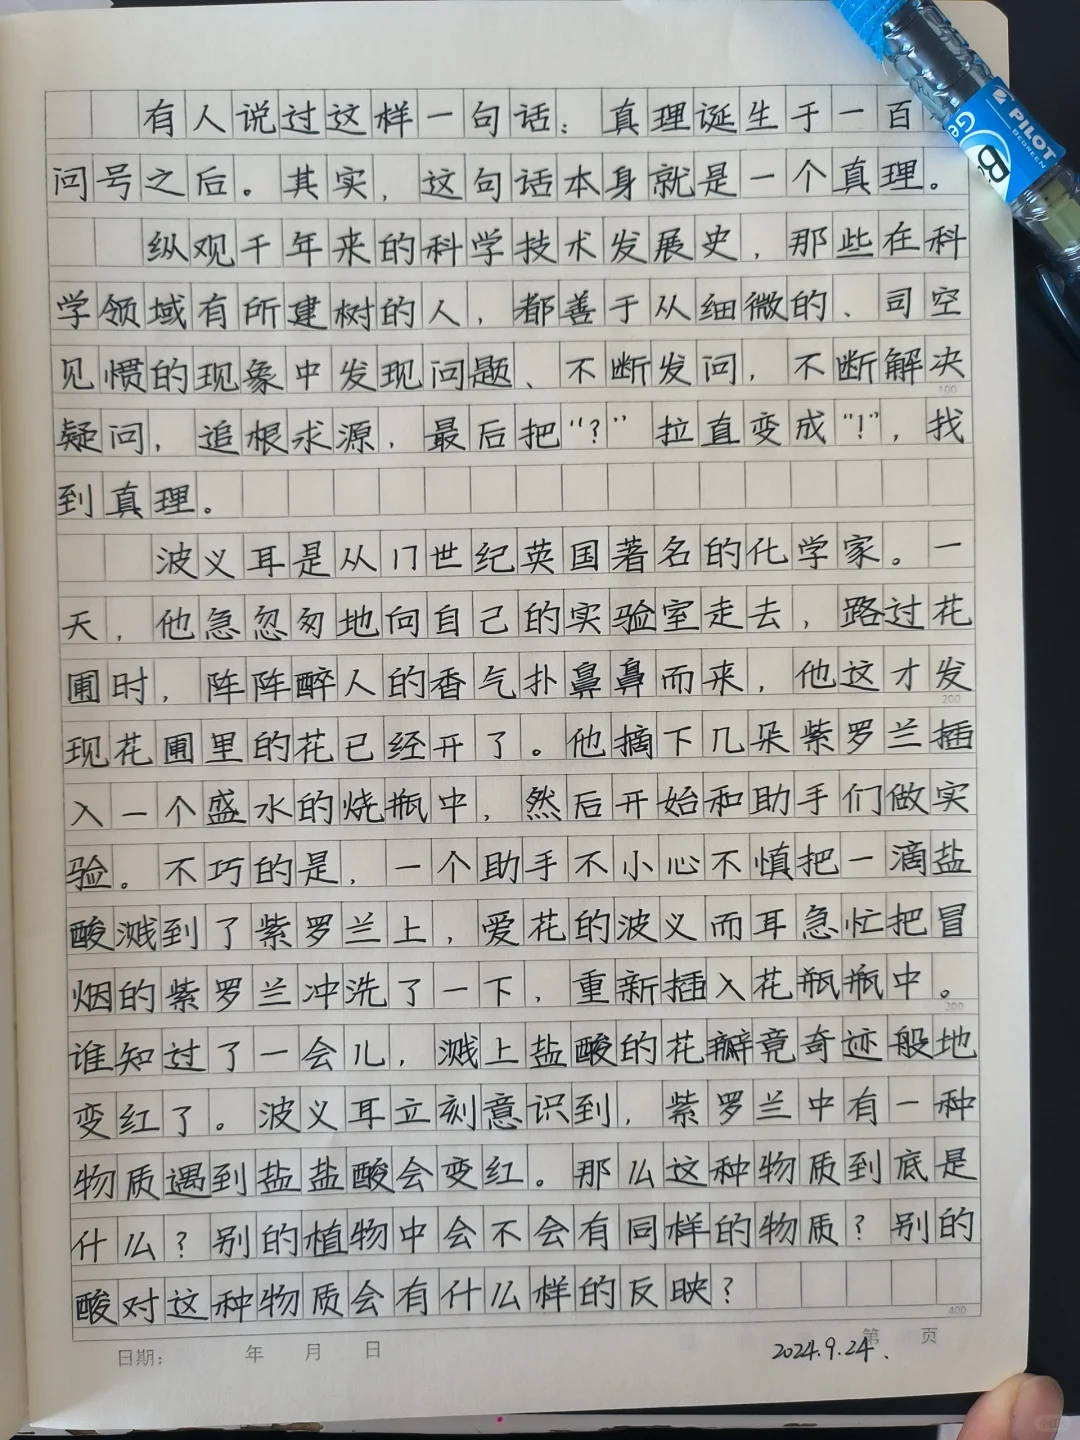 有人说过这样一句话：真理诞生于一百
问号之后。其实，这句话本身就是一个真理。
纵观千年来的科学技术发展史，那些在科
学领域有所建树的人，都善于从细微的、司空
见惯的现象中发现问题、不断发问，不断解决
100
疑问，追根求源，最后把“?”拉直变成“!”，找
到真理。
波义耳是从17世纪英国著名的化学家。一
天，他急忽匆地向自己的实验室走去，路过花
圃时，阵阵醉人的香气扑鼻鼻而来，他这才发
200
现花圃里的花已经开了。他摘下几朵紫罗兰插
入一个盛水的烧瓶中，然后开始和助手们做实
验。不巧的是，一个助手不小心不慎把一滴盐
酸溅到了紫罗兰上，爱花的波义而耳急忙把冒
烟的紫罗兰冲洗了一下，重新插入花瓶瓶中。
300
谁知过了一会儿，溅上盐酸的花瓣竟奇迹般地
变红了。波义耳立刻意识到，紫罗兰中有一种
物质遇到盐盐酸会变红。那么这种物质到底是
什么？别的植物中会不会有同样的物质？别的
酸对这种物质会有什么样的反映？
400
日期： 年 月 日 第 页
2024.9.24.
PILOT
BEGREEN